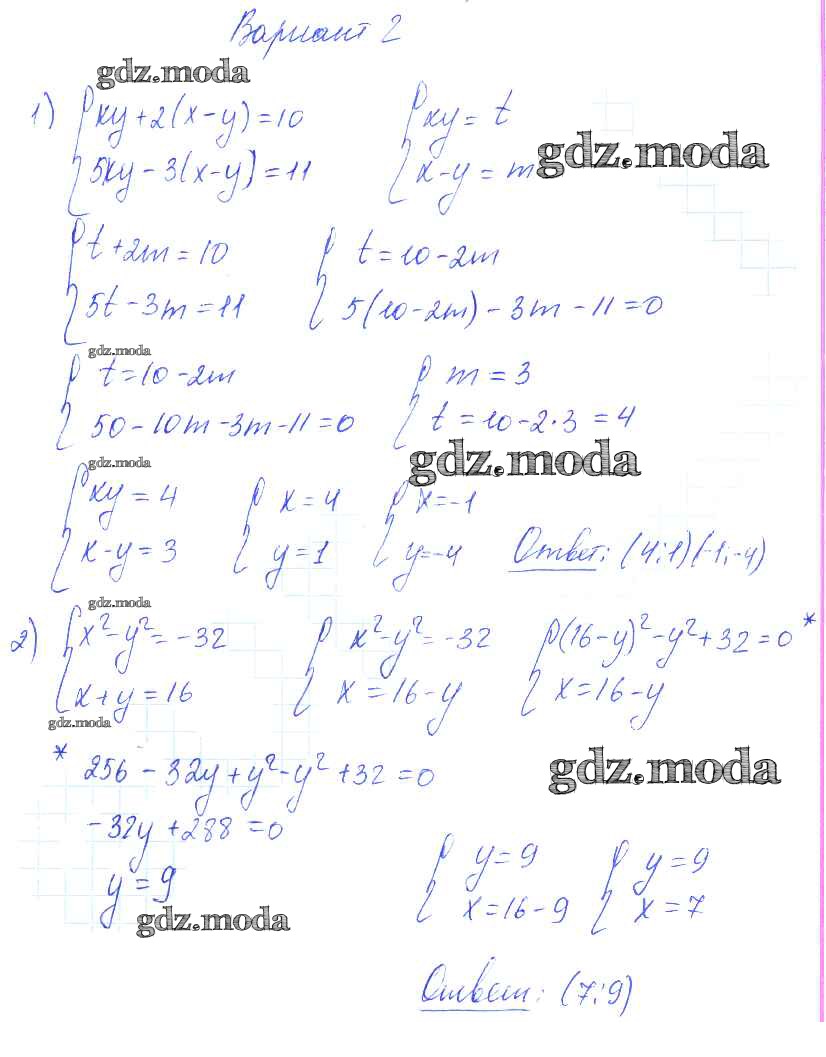 Вариант 2
gdz.moda
1) { xy + 2(x - y) = 10 { xy = t
{ 5xy - 3(x - y) = 11 { x - y = m
gdz.moda
{ t + 2m = 10 { t = 10 - 2m
{ 5t - 3m = 11 { 5(10 - 2m) - 3m - 11 = 0
gdz.moda
{ t = 10 - 2m { m = 3
{ 50 - 10m - 3m - 11 = 0 { t = 10 - 2·3 = 4
gdz.moda gdz.moda
{ xy = 4 { x = 4 { x = -1
{ x - y = 3 { y = 1 { y = -4 Ответ: (4;1)(-1;-4)
gdz.moda
2) { x² - y² = -32 { x² - y² = -32 { (16 - y)² - y² + 32 = 0 *
{ x + y = 16 { x = 16 - y { x = 16 - y
gdz.moda
* 256 - 32y + y² - y² + 32 = 0
gdz.moda
-32y + 288 = 0
y = 9 { y = 9 { y = 9
{ x = 16 - 9 { x = 7
gdz.moda
Ответ: (7;9)